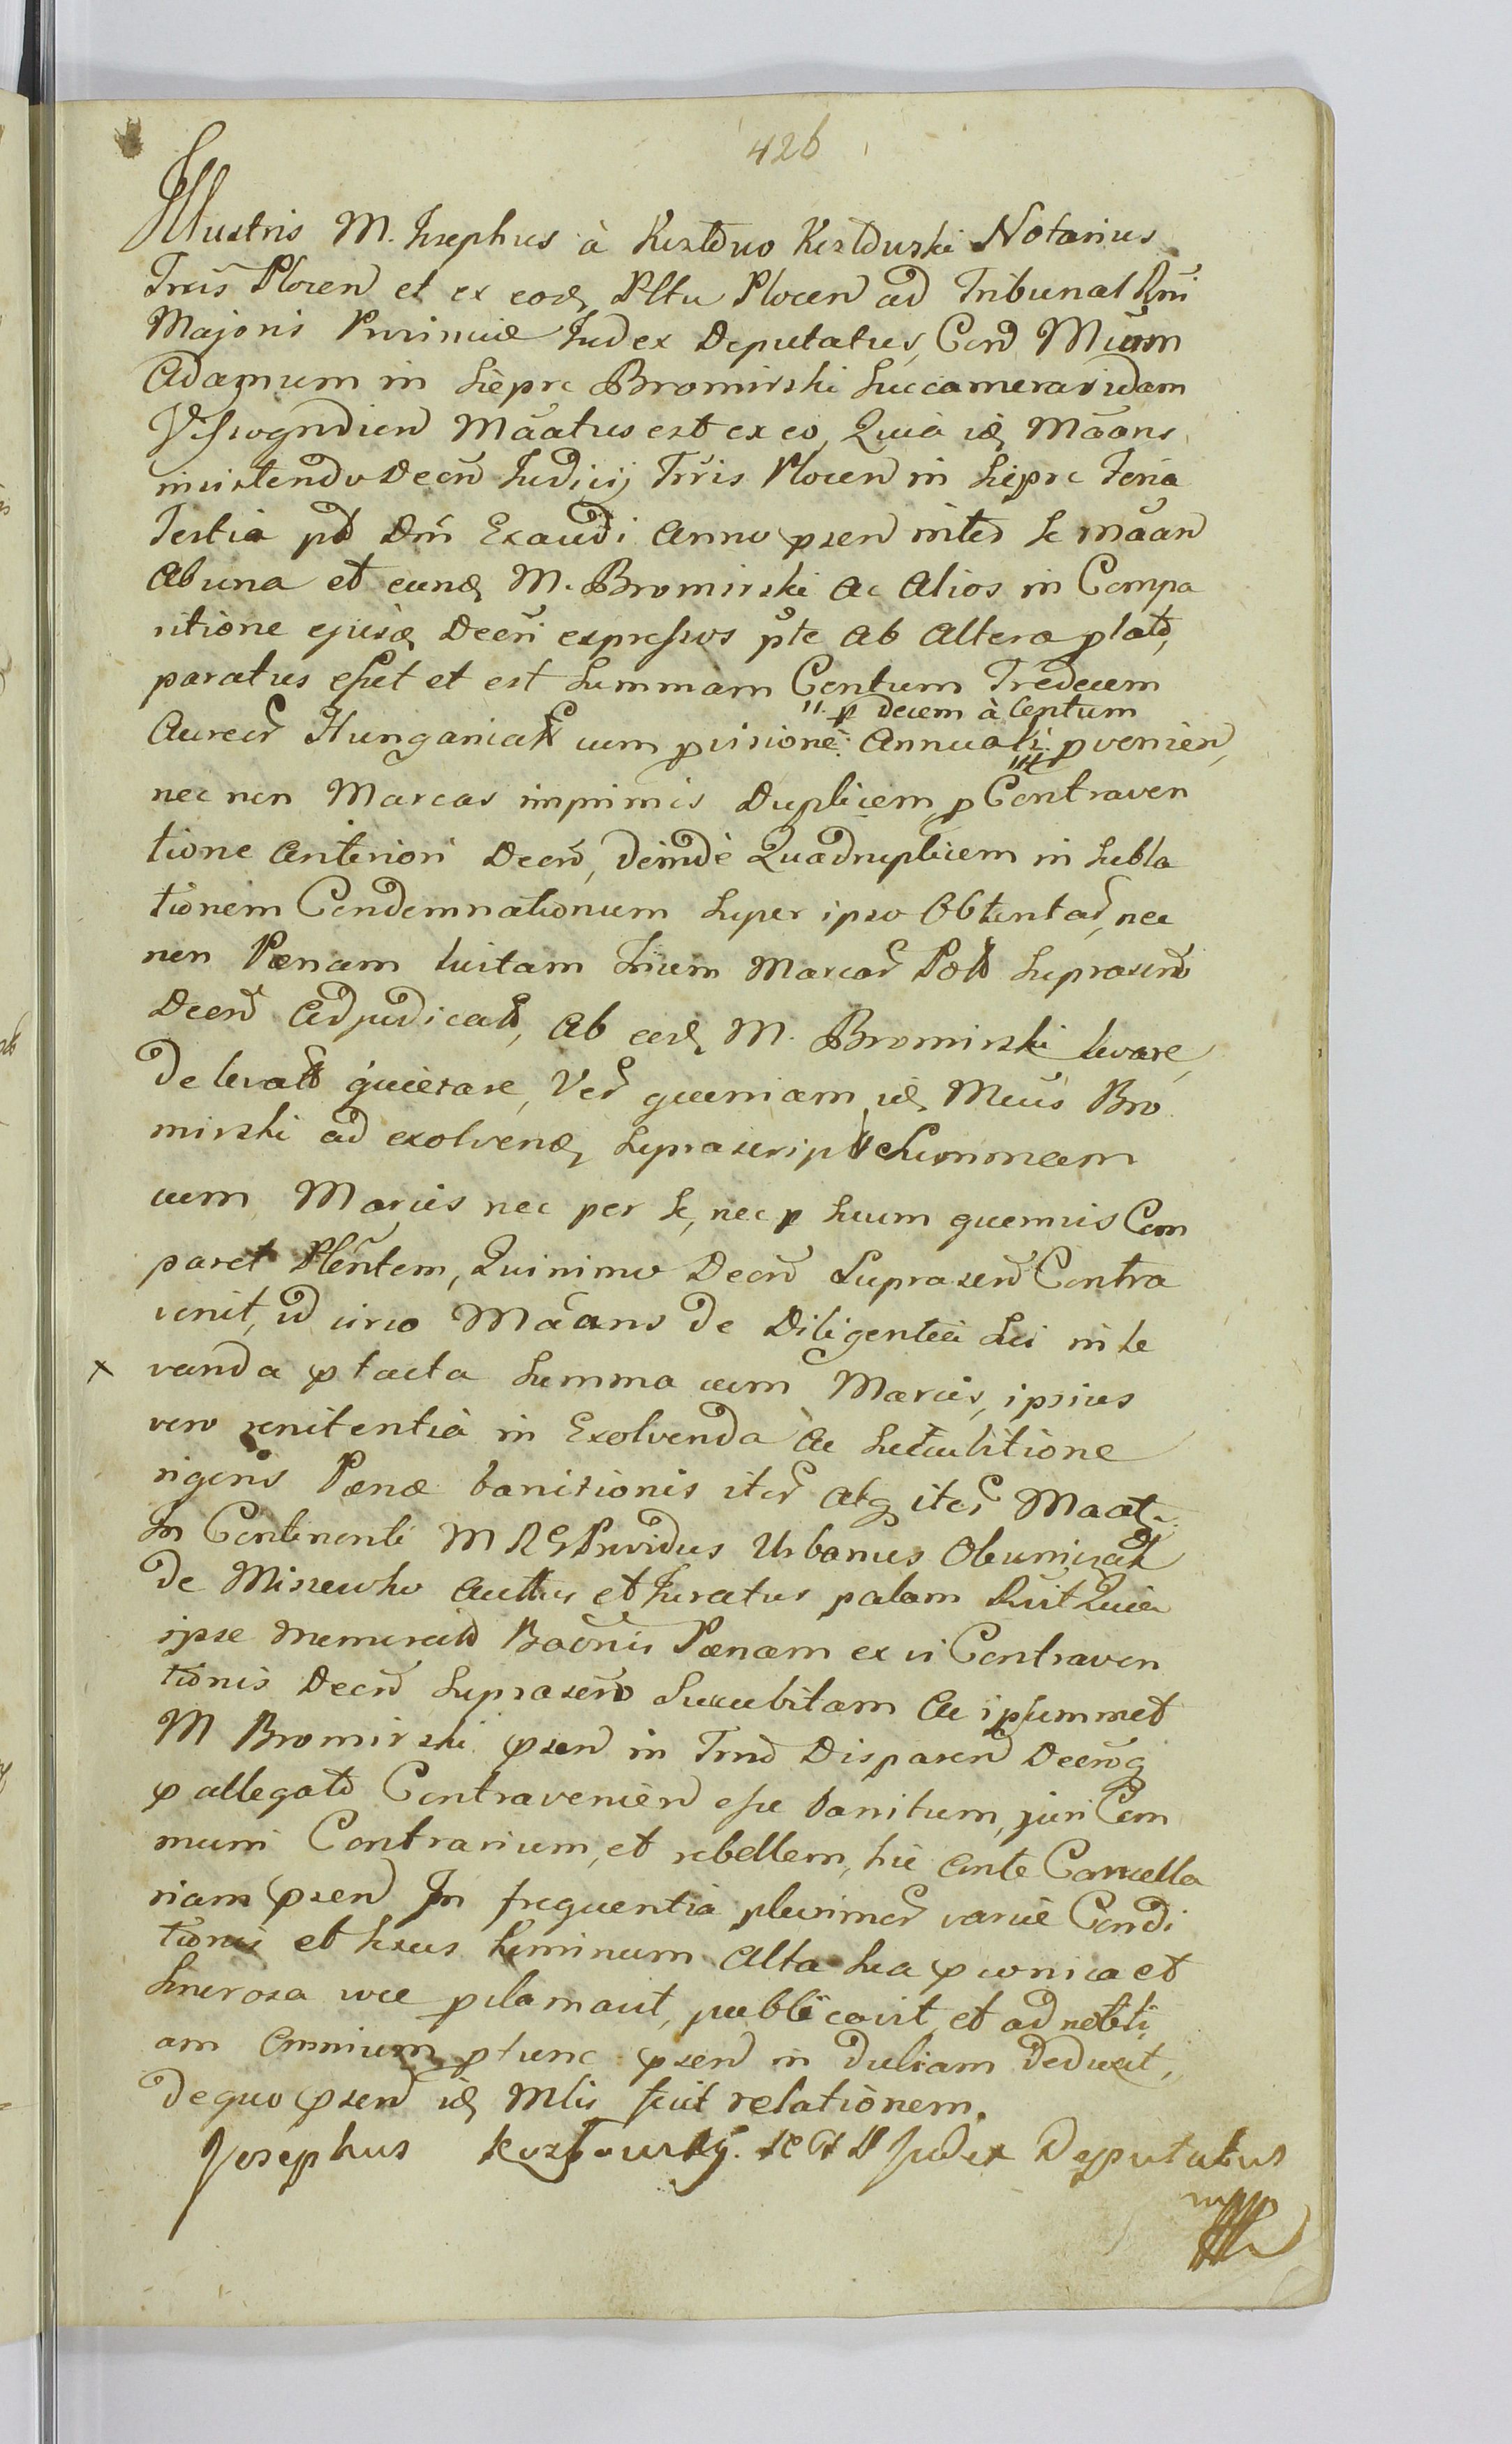 426
Illustris M. Josephus à Kozłowo Kozłowski Notarius
Trris Plocen et ex eodq Pltu Plocen ad Tribunal Rni
Majoris Provinciæ Judex Deputatus, Cord Mficum
Adamum in Sieprc Bromirski Succameraridam
Wyszogrodien Mãatus est ex eo, Quia idq Mãans
insistendo Decro Judicij Trris Plocen in Sieprc Feria
Tertia pt Dm̃ Exaudi Anno prsen inter se mãan
Ab una et eundq M. Bromirski Ac Alios in Compa
ritione ejusdq Decri expressos pte Ab Altera plato,
paratus esset et est Summam Centum Tredecem
" p decem à Centum
Aureor Hungarical cum pvisione: Annuali: pvenien,
nec non Marcas imprimis Duplicem p Contraven
tione Anteriori Decro, deindè Quadruplicem in Subla
tionem Condemnationum Super ipso Obtentar, nec
non Pænam luitam trium Marcar Pol Suprascro
Decro Adjudicat, Ab eodq M. Bromirski levare,
De levatt quietare, Ver quoniam idq Mcus Bro
mirski ad exolvendq Suprascript Summam
cum Marcis nec per se, nec p Suum quemvis Com
paret Plentem, Quinimo Decro Suprascro Contra
venit, id circo Mãans de Diligentia Sui in le
x vanda ptacta Summa cum Marcis, ipsius
vero renitentià in Exolvenda Ac Succubitione
rigoris Pænæ banitionis iter Atq iter Maat.
In Continenti M R G Providus Urbanus
de Miszewko Auttus et Juratus palam Rcvit Quia
ipse memorato Baonis Pænam ex vi Contraven
tionis Decro Suprascro Succubitam Ac ipsummet
M Bromirski prsen in Trno Disparen Decroq
p allegato Contravenien esse banitum, juri Com
muni Contrarium, et rebellem, hic Ante Cancella
riam prsen In frequentia plurimor variè Condi
tionis et sexus hominum Alta Sua pconica et
Sonorosa voce pclamavit, publicavit, et ad notiti
am Omnium ptunc prsen in duliam Deduxit,
de quo prsen idq Mlis fecit relationem.
Josephus Kozłowsky. Judex Deputatus
mpp